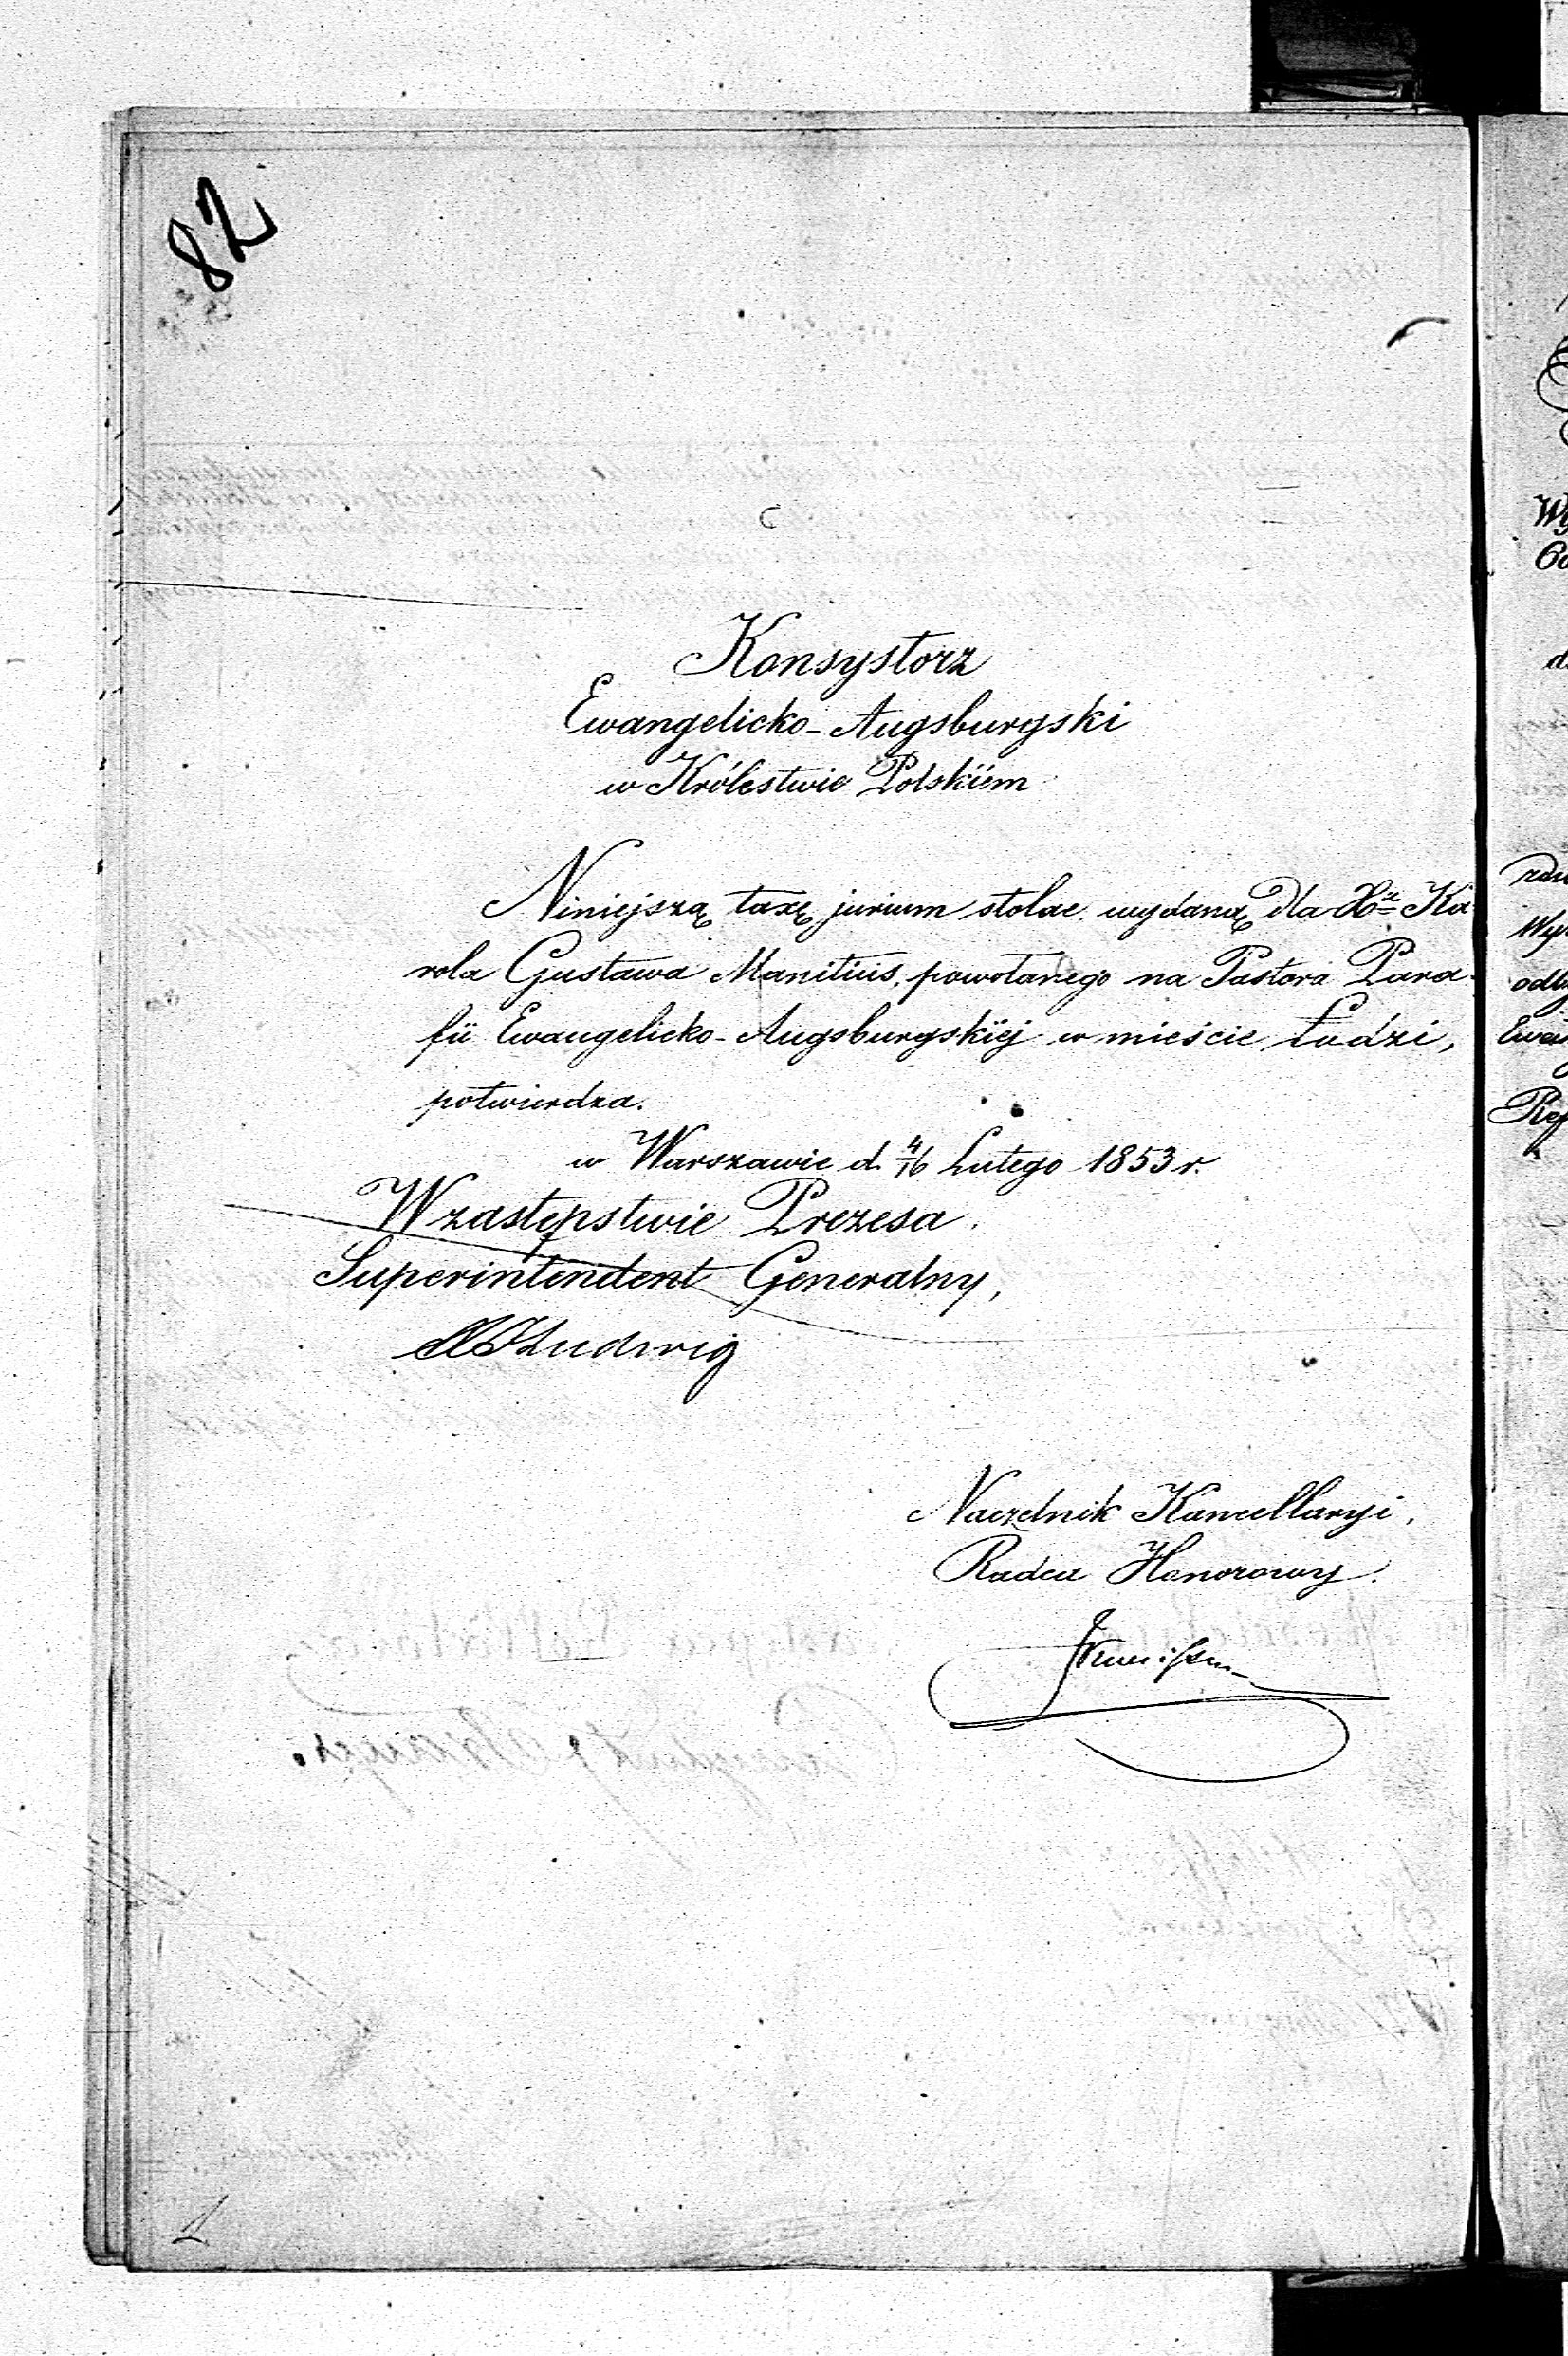 82
Konsystorz
Ewangelicko-Augsburgski
w Królestwie Polskiem
Niniejszą taxę jurium stolae, wydaną dla Xdza Ka-
rola Gustawa Manitius, powołanego na Pastora Para-
fii Ewangelicko-Augsburgskiéj w mieście Łodzi,
potwierdza.
w Warszawie d. 4/16 Lutego 1853 r.
W zastępstwie Prezesa.
Superintendent Generalny,
Ludwig
Naczelnik Kancellaryi,
Radca Honorowy.